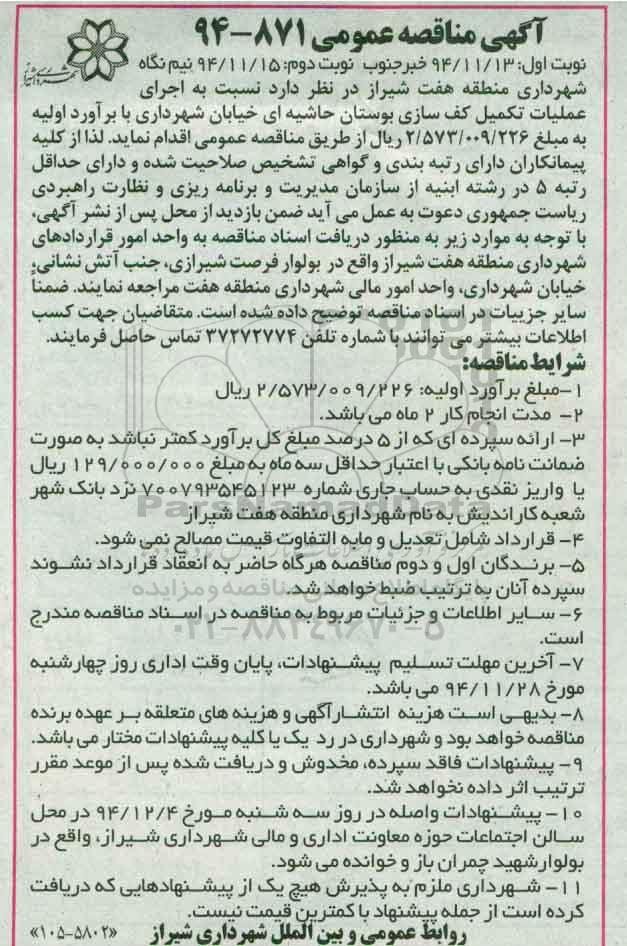 آگهی مناقصه عمومی ۸۷۱-۹۴
نوبت اول: ۹۴/۱۱/۱۳ خبرجنوب نوبت دوم: ۹۴/۱۱/۱۵ نیم نگاه
شهرداری منطقه هفت شیراز در نظر دارد نسبت به اجرای
عملیات تکمیل کف سازی بوستان حاشیه ای خیابان شهرداری با برآورد اولیه
به مبلغ ۲/۵۷۳/۰۰۹/۲۲۶ ریال از طریق مناقصه عمومی اقدام نماید. لذا از کلیه
پیمانکاران دارای رتبه بندی و گواهی تشخیص صلاحیت شده و دارای حداقل
رتبه ۵ در رشته ابنیه از سازمان مدیریت و برنامه ریزی و نظارت راهبردی
ریاست جمهوری دعوت به عمل می آید ضمن بازدید از محل پس از نشر آگهی،
با توجه به موارد زیر به منظور دریافت اسناد مناقصه به واحد امور قراردادهای
شهرداری منطقه هفت شیراز واقع در بولوار فرصت شیرازی، جنب آتش نشانی،
خیابان شهرداری، واحد امور مالی شهرداری منطقه هفت مراجعه نمایند. ضمناً
سایر جزییات در اسناد مناقصه توضیح داده شده است. متقاضیان جهت کسب
اطلاعات بیشتر می توانند با شماره تلفن ۳۷۲۷۲۷۷۴ تماس حاصل فرمایند.
شرایط مناقصه:
۱-مبلغ برآورد اولیه: ۲/۵۷۳/۰۰۹/۲۲۶ ریال
۲- مدت انجام کار ۲ ماه می باشد.
۳- ارائه سپرده ای که از ۵ درصد مبلغ کل برآورد کمتر نباشد به صورت
ضمانت نامه بانکی با اعتبار حداقل سه ماه به مبلغ ۱۲۹/۰۰۰/۰۰۰ ریال
یا واریز نقدی به حساب جاری شماره ۷۰۰۷۹۳۵۴۵۱۲۳ نزد بانک شهر
شعبه کاراندیش به نام شهرداری منطقه هفت شیراز
۴- قرارداد شامل تعدیل و مابه التفاوت قیمت مصالح نمی شود.
۵- برندگان اول و دوم مناقصه هرگاه حاضر به انعقاد قرارداد نشوند
سپرده آنان به ترتیب ضبط خواهد شد.
۶- سایر اطلاعات و جزئیات مربوط به مناقصه در اسناد مناقصه مندرج
است.
۷- آخرین مهلت تسلیم پیشنهادات، پایان وقت اداری روز چهارشنبه
مورخ ۹۴/۱۱/۲۸ می باشد.
۸- بدیهی است هزینه انتشار آگهی و هزینه های متعلقه بر عهده برنده
مناقصه خواهد بود و شهرداری در رد یک یا کلیه پیشنهادات مختار می باشد.
۹- پیشنهادات فاقد سپرده، مخدوش و دریافت شده پس از موعد مقرر
ترتیب اثر داده نخواهد شد.
۱۰- پیشنهادات واصله در روز سه شنبه مورخ ۹۴/۱۲/۴ در محل
سالن اجتماعات حوزه معاونت اداری و مالی شهرداری شیراز، واقع در
بولوارشهید چمران باز و خوانده می شود.
۱۱- شهرداری ملزم به پذیرش هیچ یک از پیشنهادهایی که دریافت
کرده است از جمله پیشنهاد با کمترین قیمت نیست.
روابط عمومی و بین الملل شهرداری شیراز «۱۰۵-۵۸۰۲»
ParsNamadData
۰۲۱-۸۸۳۴۹۶۷۰-۵